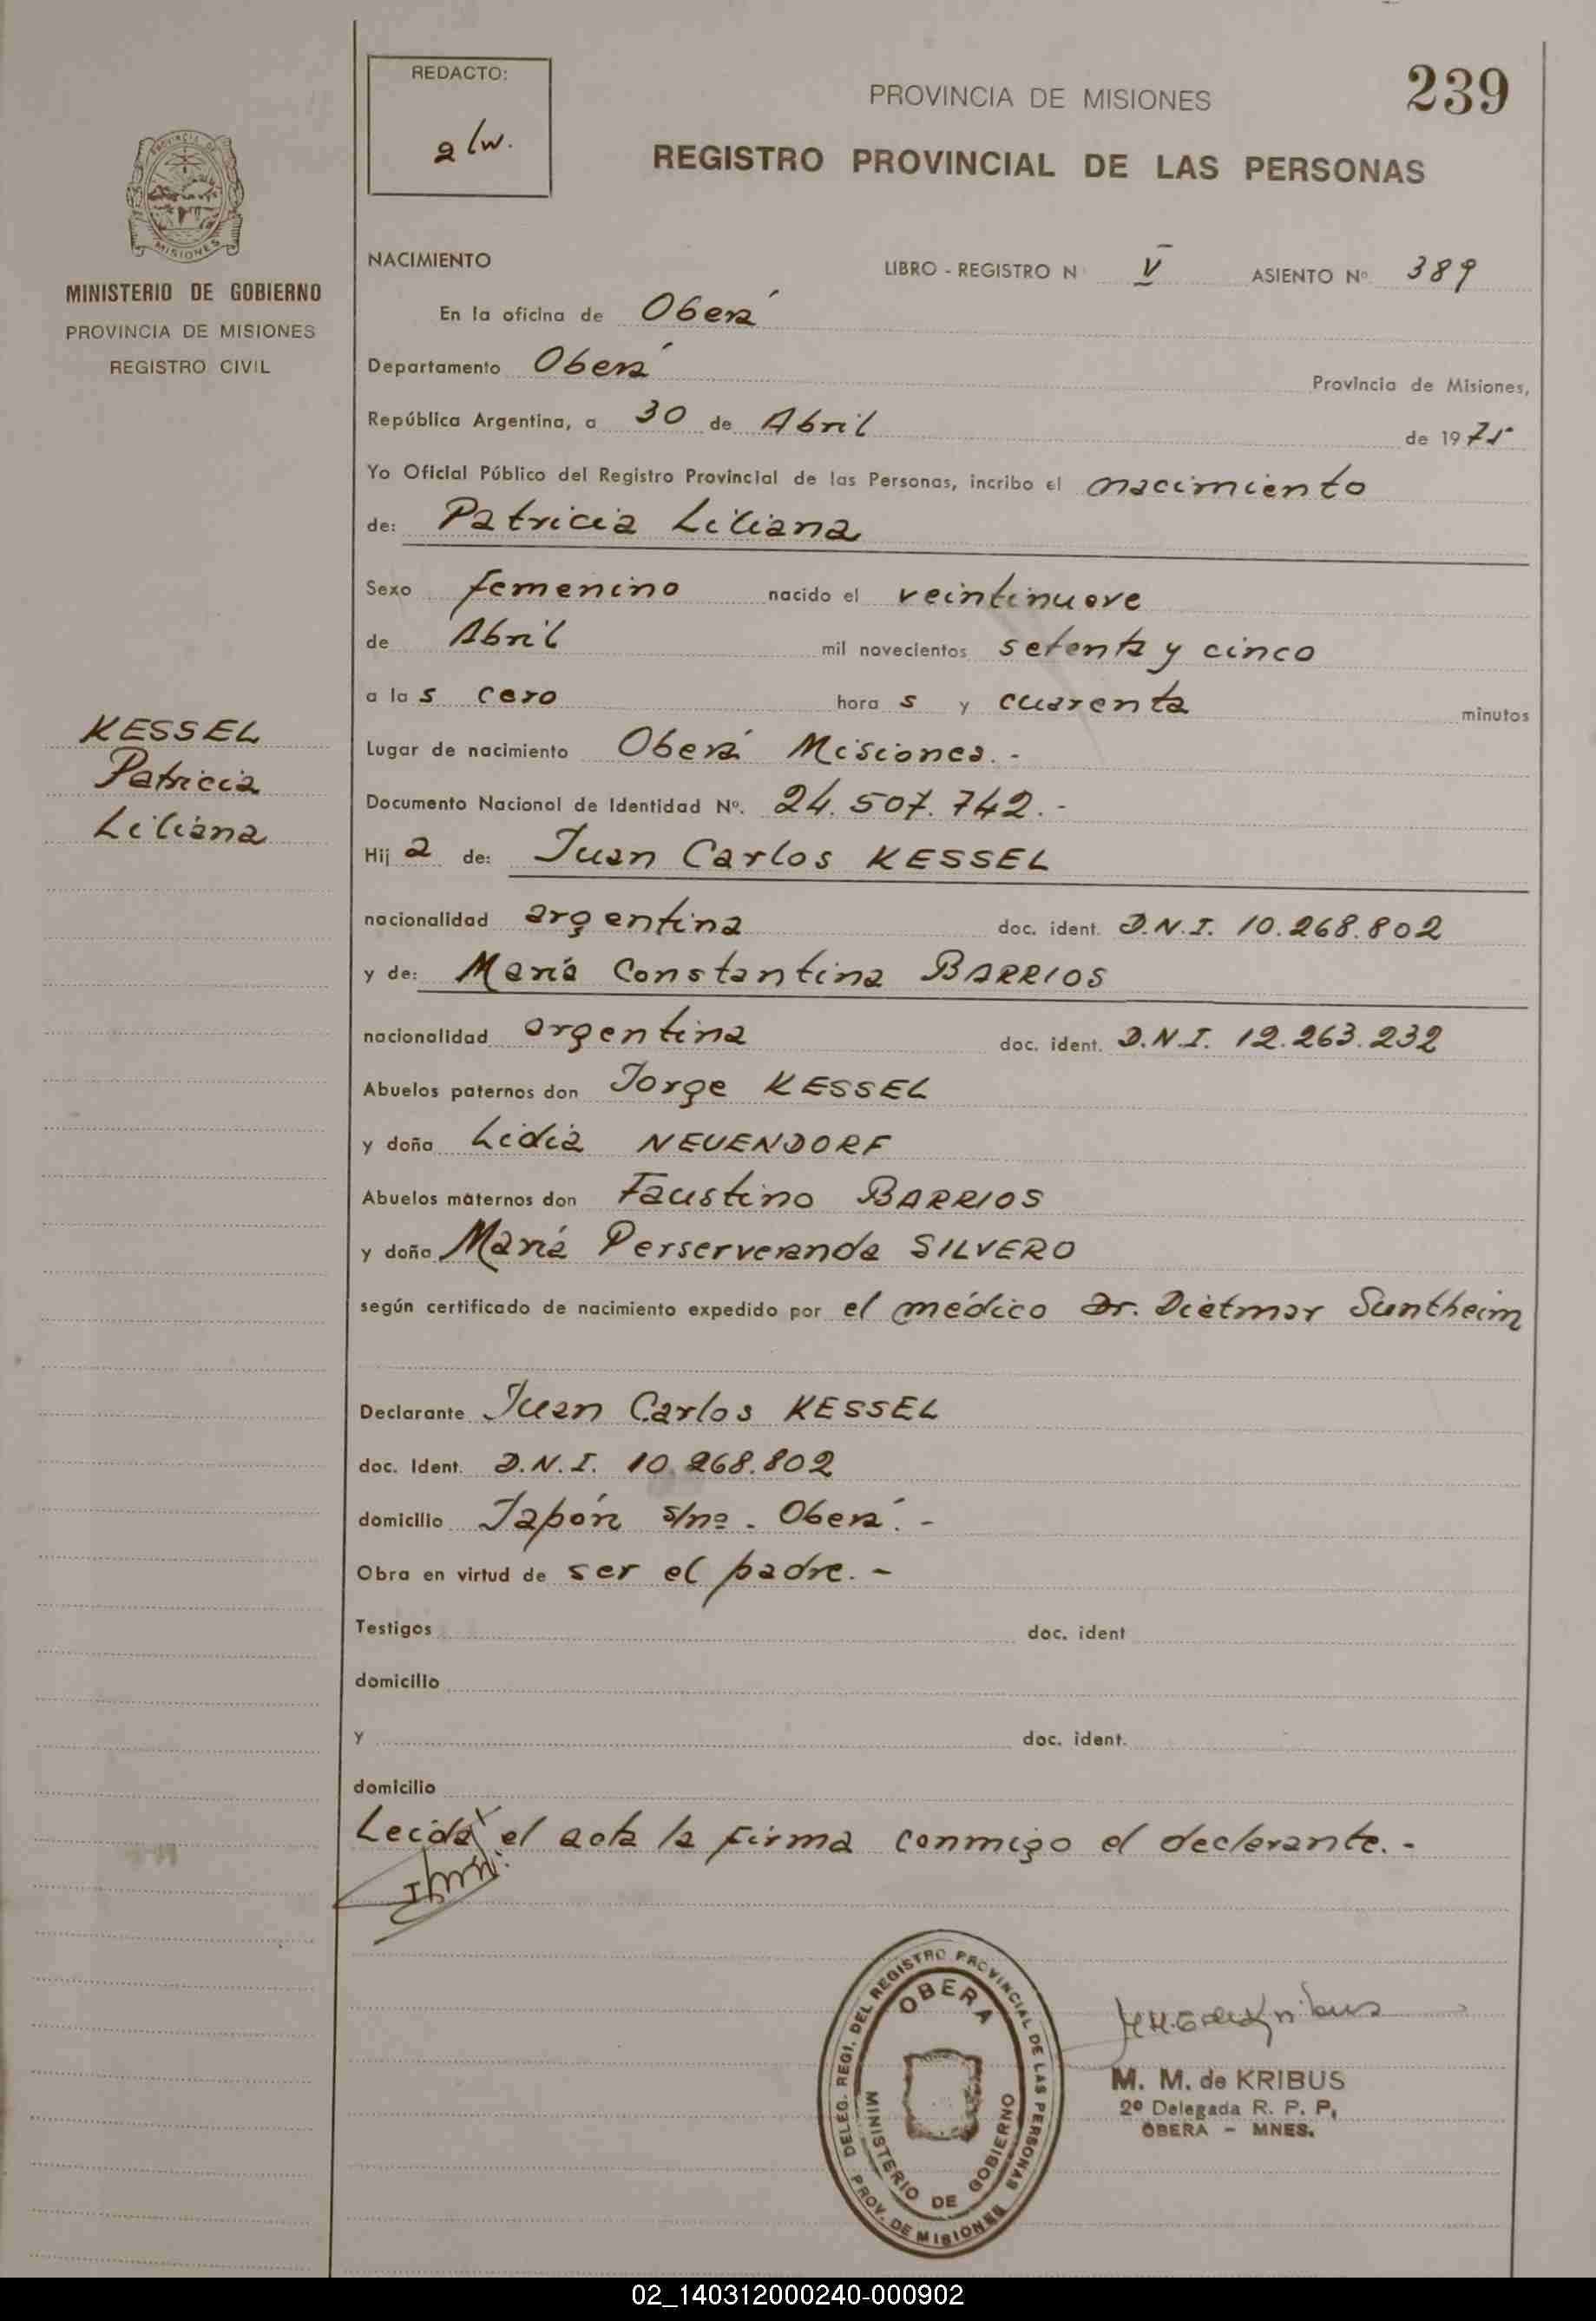 REDACTO:
a/w.
PROVINCIA DE MISIONES
239
REGISTRO PROVINCIAL DE LAS PERSONAS
PROVINCIA DE
MISIONES
MINISTERIO DE GOBIERNO
PROVINCIA DE MISIONES
REGISTRO CIVIL
KESSEL
Patricia
Liliana
NACIMIENTO
LIBRO - REGISTRO N V ASIENTO Nº 389
En la oficina de Oberá
Departamento Oberá Provincia de Misiones,
República Argentina, a 30 de Abril de 1975
Yo Oficial Público del Registro Provincial de las Personas, incribo el nacimiento
de: Patricia Liliana
Sexo femenino nacido el veintinueve
de Abril mil novecientos setenta y cinco
a la s cero hora s y cuarenta minutos
Lugar de nacimiento Oberá Misiones.-
Documento Nacional de Identidad Nº. 24.507.742.-
Hij a de: Juan Carlos KESSEL
nacionalidad argentina doc. ident. D.N.I. 10.268.802
y de: María Constantina BARRIOS
nacionalidad argentina doc. ident. D.N.I. 12.263.232
Abuelos paternos don Jorge KESSEL
y doña Lidia NEUENDORF
Abuelos maternos don Faustino BARRIOS
y doña María Perserveranda SILVERO
según certificado de nacimiento expedido por el médico Dr. Dietmar Suntheim
Declarante Juan Carlos KESSEL
doc. Ident. D.N.I. 10.268.802
domicilio Japón s/nº. Oberá.-
Obra en virtud de ser el padre.-
Testigos doc. ident
domicilio
y doc. ident.
domicilio
Leida el acta la firma conmigo el declarante.-
DELEG. REGI. DEL REGISTRO PROVINCIAL DE LAS PERSONAS
PROV. DE MISIONES
OBERA
MINISTERIO DE GOBIERNO
M. M. de KRIBUS
2º Delegada R. P. P.
OBERA - MNES.
02_140312000240-000902